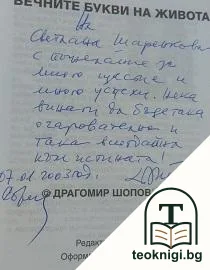 ВЕЧНИТЕ БУКВИ НА ЖИВОТА
На
Светлана Шаренкова
с пожелание за
много щастие и
много успехи. Нека
винаги да бъдете така
очарователна и
така всеотдайна
към истината!
07.01.2003 год.
© ДРАГОМИР ШОПОВ
Редакт
Оформ
teoknigi.bg